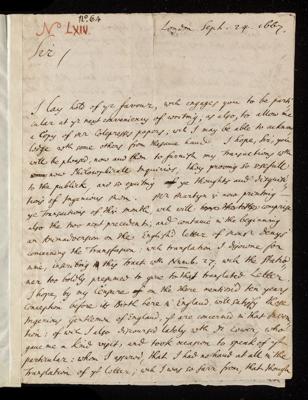 No. 64
No LXIV.
London Sept. 24. 1667.
Sir/
I last of yr favour, wch engages you to be parti
cular at yr next conveniency of writing; as also, to allow me
a Copy of Mr Colepresses papers, wch I may be able to acknow
ledge with some others from the same hand. I hope, Sir, you
will be pleased, now and then to furnish my Transactions wth
some Philosophicall Inquiries, they proving so usefull
to the publick, and so quiting ye thoughts and disquisi
tions of Ingenious Men. Mr Martyn is now printing
ye Transactions of this month, wch will comprise
also the two next precedents; and containe in the beginning
an Animadversion on the English't Letter of Monsr Denys
concerning the Transfusion, wch translation I disowne for
mine, inserting this Tract with Numb. 27, wch the Statio
ner too boldly prepared to give to that translated Letter.
I hope, by the Censure of the there mentioned ten years
conception before its Birth here in England, will satisfy those
Ingenious Gentlemen of England, yt are concerned in that Inven
tion; of wch I also discoursed lately with Dr Lower, who
gave me a kind visit, and took occasion to speak of ys
particular: whom I assured, that I had no hand at all in the
Translation of yt Letter; wch I was so farr from, that though